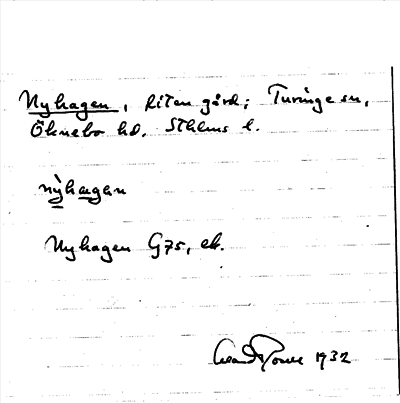 Nyhagen, liten gård; Turinge sn,
Öknebo hd. Sthlms l.
nỳhagen
Nyhagen G75, ek.
1932